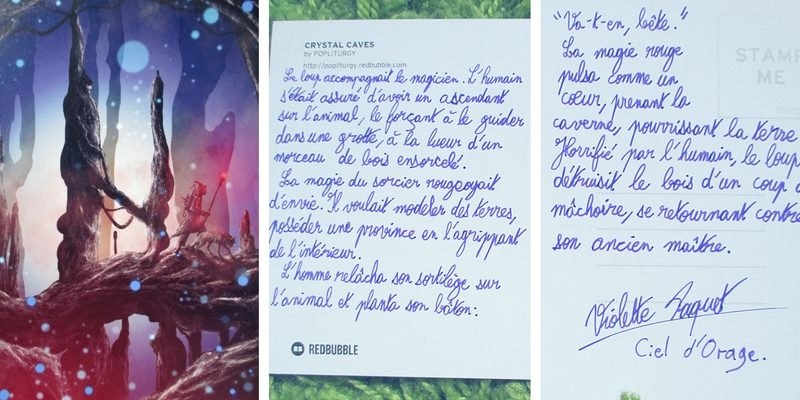 CRYSTAL CAVES
by POPLITURGY
http://popliturgy.redbubble.com
Le loup accompagnait le magicien. L'humain
s'était assuré d'avoir un ascendant
sur l'animal, le forçant à le guider
dans une grotte, à la lueur d'un
morceau de bois ensorcelé.
La magie du sorcier rougeoyait
d'envie. Il voulait modeler des terres,
posséder une province en l'agrippant
de l'intérieur.
L'homme relâcha son sortilège sur
l'animal et planta son bâton:
REDBUBBLE
"Va-t-en, bête."
La magie rouge
pulsa comme un
cœur, prenant la
caverne, pourrissant la terre
Horrifié par l'humain, le loup
détruisit le bois d'un coup d
mâchoire, se retournant contre
son ancien maître.
STAMP
ME
Violette Paquet
Ciel d'Orage.